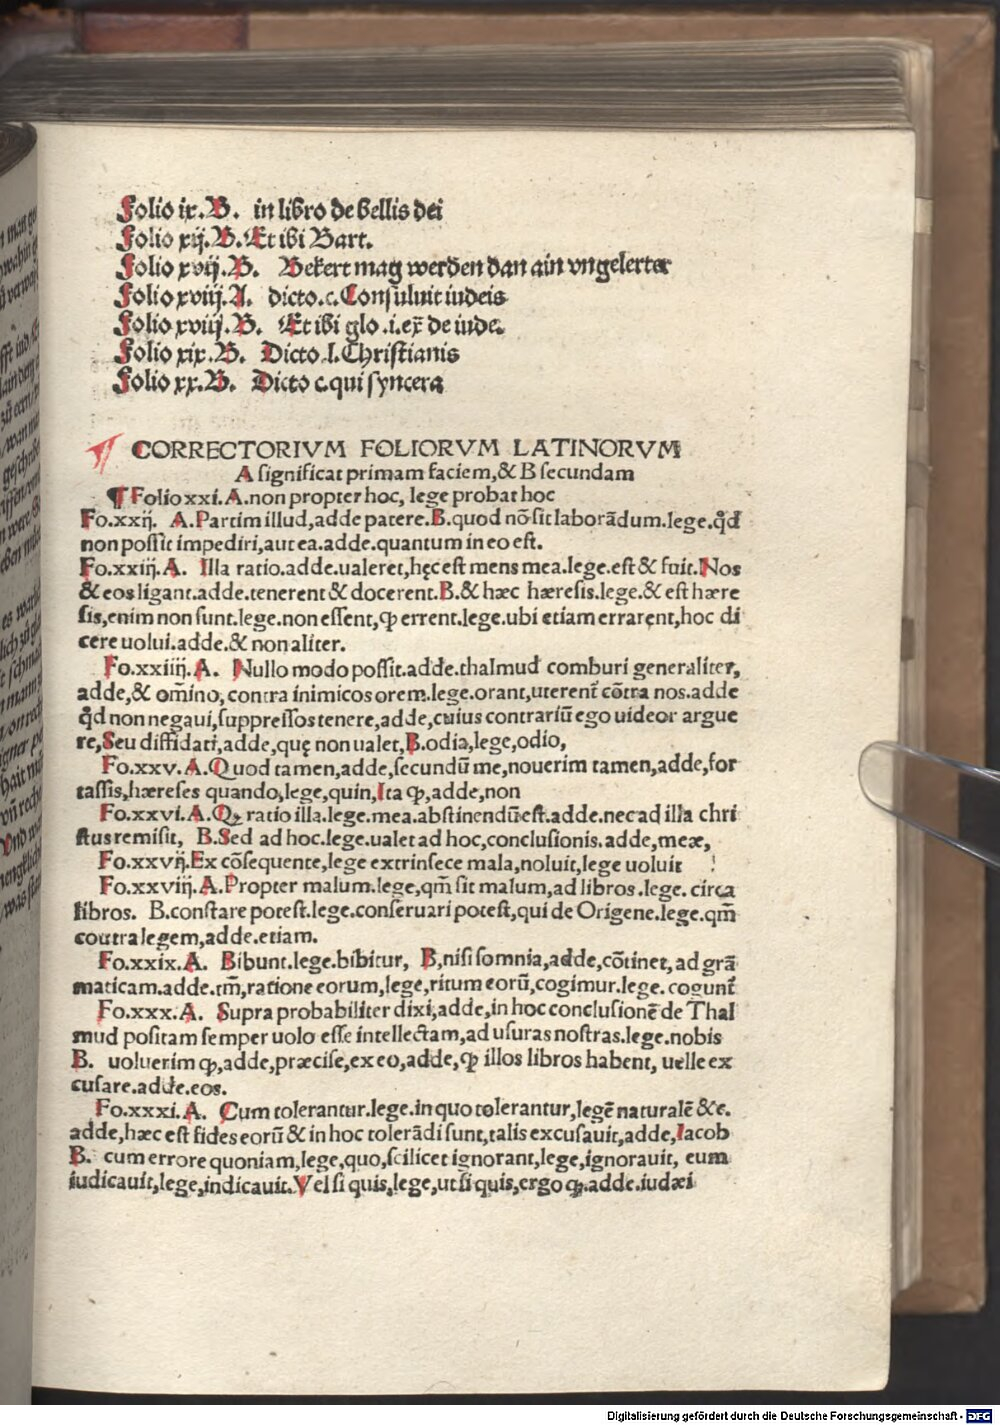 Folio ix. B. in libro de bellis dei
Folio xij. B. Et ibi Bart.
Folio xvij. B. Bekert mag werden dan ain vngelerter
Folio xviij. A. dicto .c. Consuluit iudeis
Folio xviij. B. Et ibi glo .i. ex̄ de iude.
Folio xix. B. Dicto .l. Christianis
Folio xx. B. Dicto c. qui syncera
¶ CORRECTORIVM FOLIORVM LATINORVM
A significat primam faciem, & B secundam
¶ Folio xxi. A. non propter hoc, lege probat hoc
Fo. xxij. A. Partim illud, adde patere. B. quod nō sit laborādum. lege. qđ
non possit impediri, aut ea. adde. quantum in eo est.
Fo. xxiij. A. Illa ratio. adde. ualeret, hęc est mens mea. lege. est & fuit. Nos
& eos ligant. adde. tenerent & docerent. B. & hæc hæresis. lege. & est hære
sis, enim non sunt. lege. non essent, ꝙ errent. lege. ubi etiam errarent, hoc di
cere uolui. adde. & non aliter.
Fo. xxiiij. A. Nullo modo possit. adde. thalmud comburi generaliter,
adde, & om̄ino, contra inimicos orem. lege. orant, uterent̄ cōtra nos. adde
qđ non negaui, suppressos tenere, adde, cuius contrariū ego uideor argue
re, Seu diffidati, adde, quę non ualet, B. odia, lege, odio,
Fo. xxv. A. Quod tamen, adde, secundū me, nouerim tamen, adde, for
tassis, hæreses quando, lege, quin, Ita ꝙ, adde, non
Fo. xxvi. A. Qꝫ ratio illa. lege. mea. abstinendū est. adde. nec ad illa chri
stus remisit, B. Sed ad hoc. lege. ualet ad hoc, conclusionis. adde, meæ,
Fo. xxvij. Ex cōsequente, lege extrinsece mala, noluit, lege uoluit
Fo. xxviij. A. Propter malum. lege, qm̄ sit malum, ad libros . lege. circa
libros. B. constare potest. lege. conseruari potest, qui de Origene. lege. qm̄
contra legem, adde. etiam.
Fo. xxix. A. Bibunt. lege. bibitur, B, nisi somnia, adde, cōtinet, ad grā
maticam. adde. tm̄, ratione eorum, lege, ritum eorū, cogimur. lege. cogunt̄
Fo. xxx. A. Supra probabiliter dixi, adde, in hoc conclusionē de Thal
mud positam semper uolo esse intellectam, ad usuras nostras. lege. nobis
B. uoluerim ꝙ, adde, præcise, ex eo, adde, ꝙ illos libros habent, uelle ex
cusare. adde. eos.
Fo. xxxi. A. Cum tolerantur. lege. in quo tolerantur, legē naturalē &c.
adde, hæc est fides eorū & in hoc tolerādi sunt, talis excusauit, adde, Iacob
B. cum errore quoniam, lege, quo, scilicet ignorant, lege, ignorauit, eum
iudicauit, lege, indicauit. Vel si quis, lege, ut si quis, ergo ꝙ. adde. iudæi
Digitalisierung gefördert durch die Deutsche Forschungsgemeinschaft - DFG